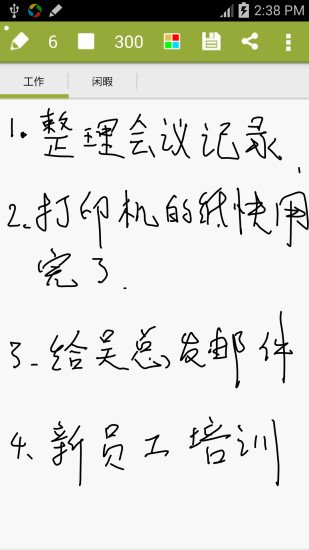 2:38 PM
6 300
工作 闲暇
1.整理会议记录.
2.打印机的纸快用
完了.
3.给吴总发邮件
4、新员工培训